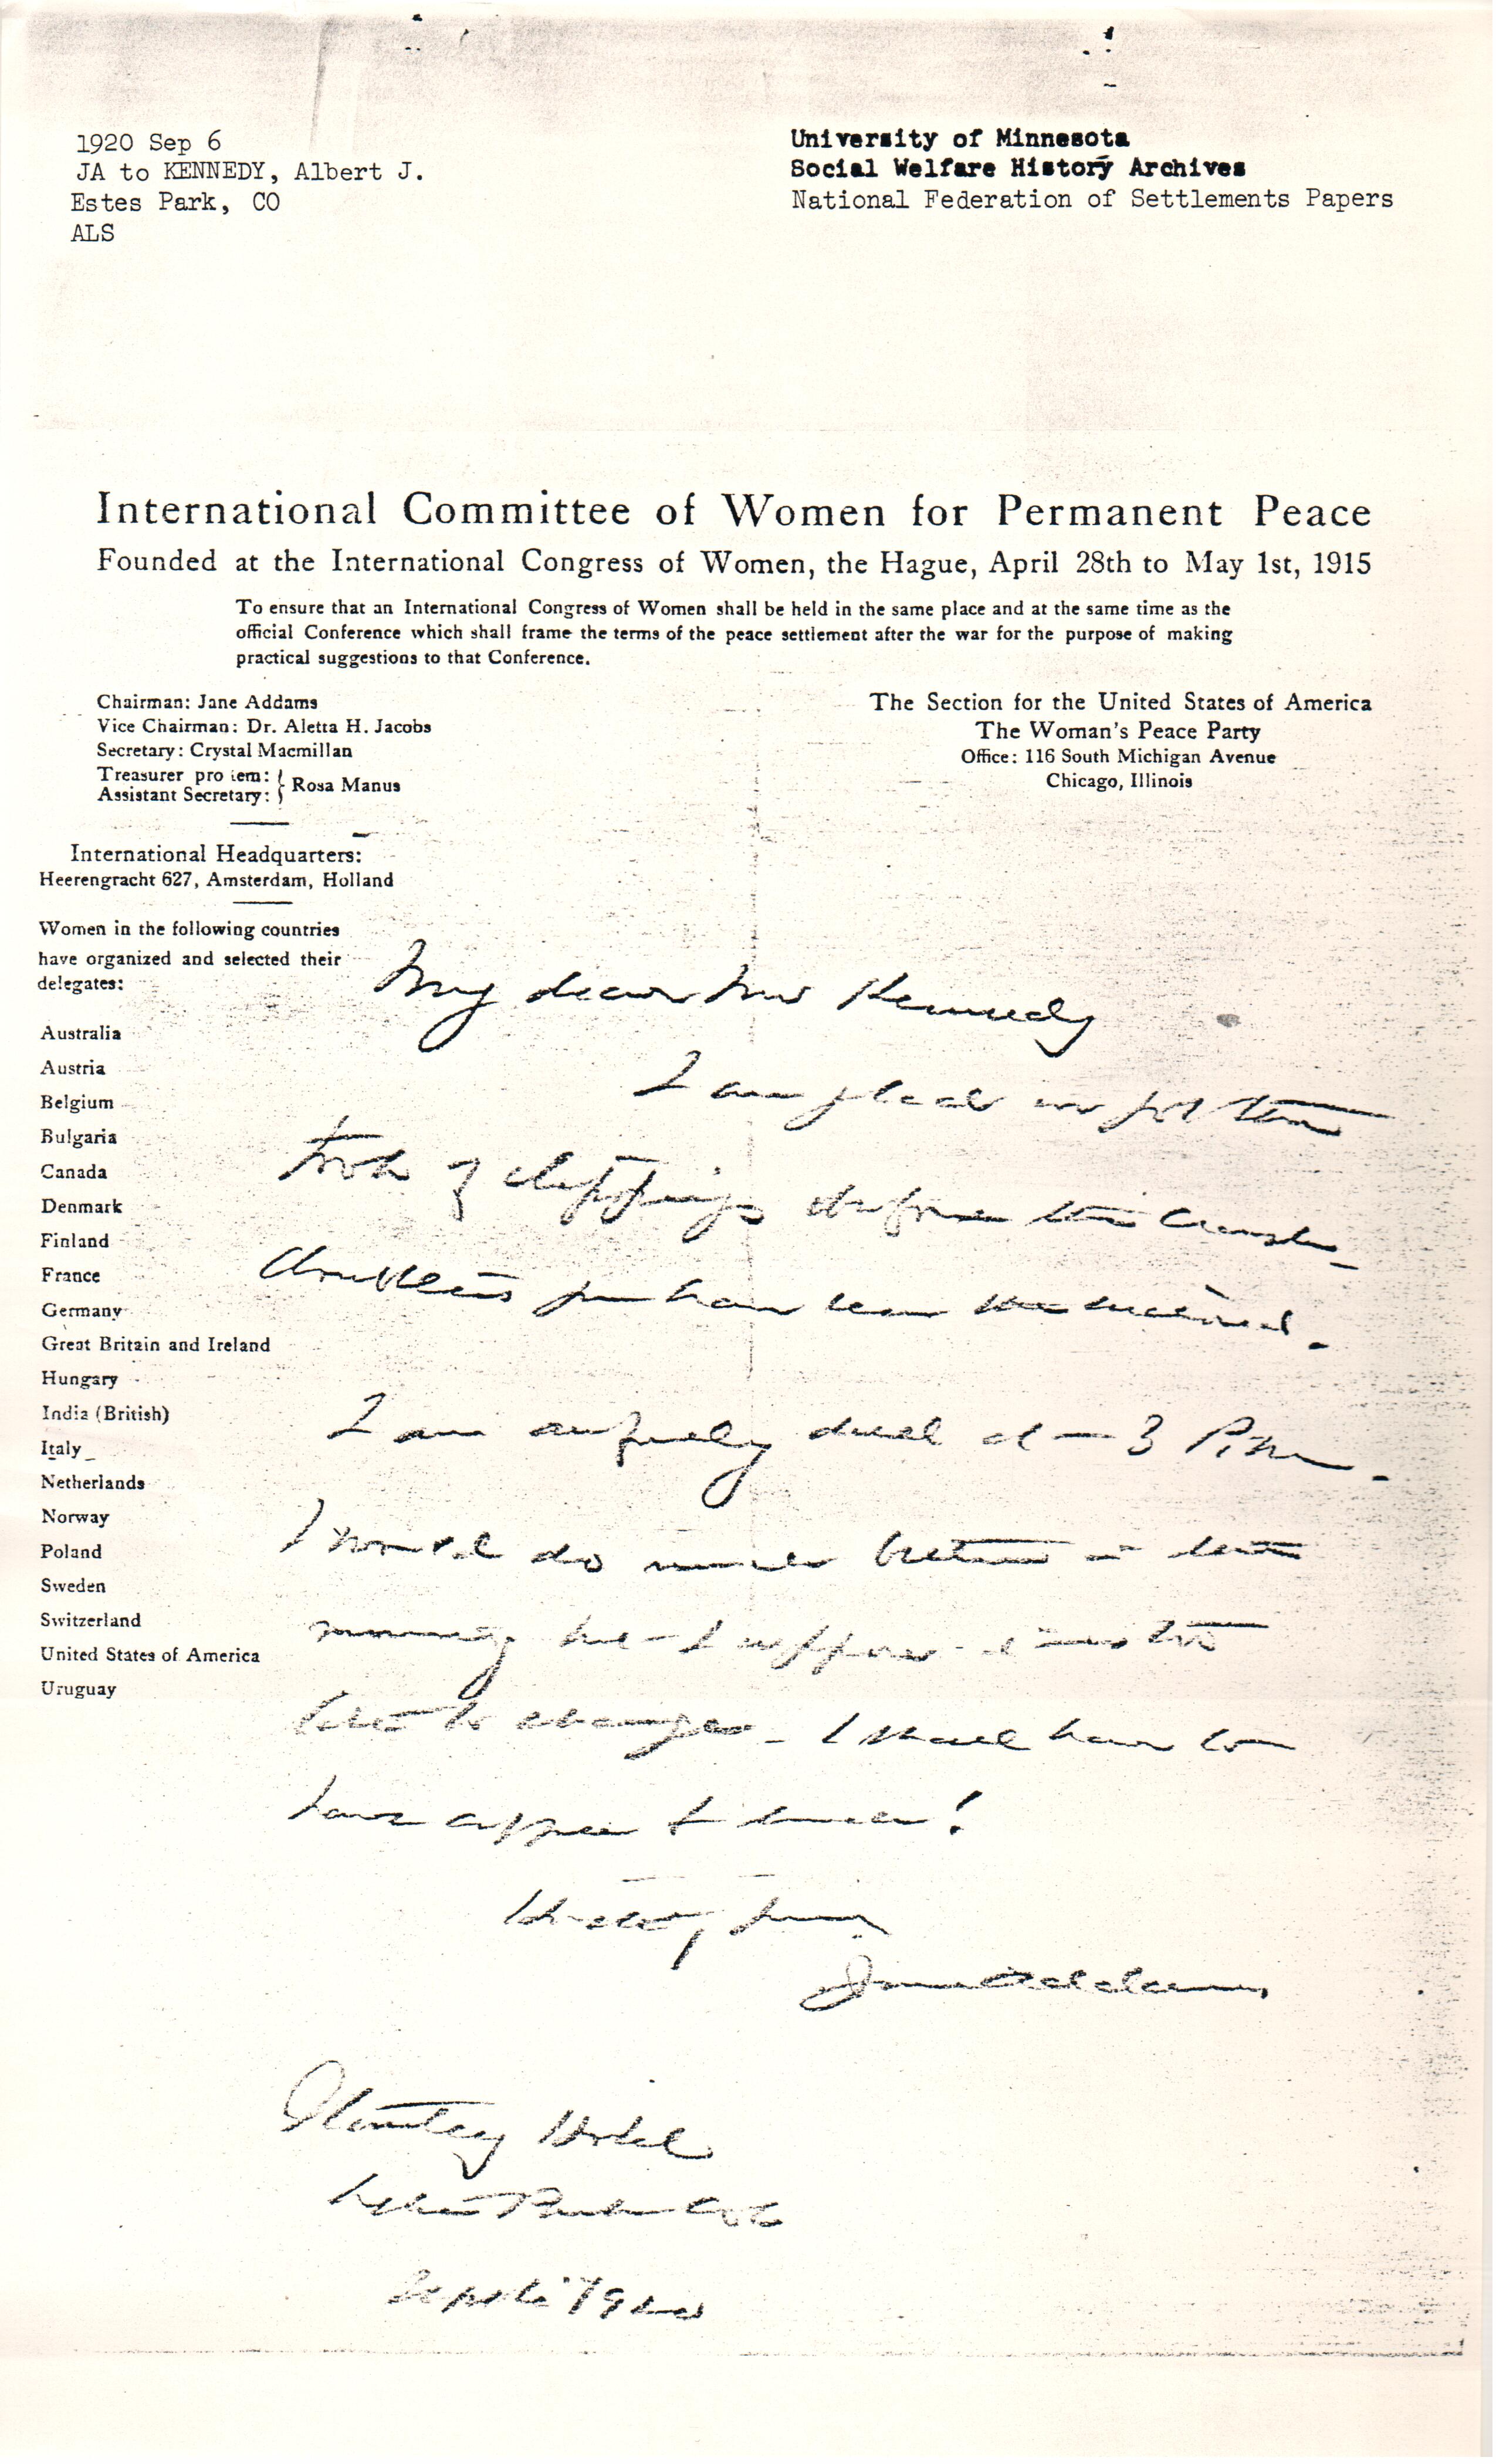 1920 Sep 6
JA to KENNEDY, Albert J.
Estes Park, CO
ALS
University of Minnesota
Social Welfare History Archives
National Federation of Settlements Papers
International Committee of Women for Permanent Peace
Founded at the International Congress of Women, the Hague, April 28th to May 1st, 1915
To ensure that an International Congress of Women shall be held in the same place and at the same time as the
official Conference which shall frame the terms of the peace settlement after the war for the purpose of making
practical suggestions to that Conference.
Chairman: Jane Addams
Vice Chairman: Dr. Aletta H. Jacobs
Secretary: Crystal Macmillan
Treasurer pro tem:
Assistant Secretary: } Rosa Manus
The Section for the United States of America
The Woman's Peace Party
Office: 116 South Michigan Avenue
Chicago, Illinois
International Headquarters:
Heerengracht 627, Amsterdam, Holland
Women in the following countries
have organized and selected their
delegates:
Australia
Austria
Belgium
Bulgaria
Canada
Denmark
Finland
France
Germany
Great Britain and Ireland
Hungary
India (British)
Italy
Netherlands
Norway
Poland
Sweden
Switzerland
United States of America
Uruguay
My dear Mr Kennedy
I am glad we got the
book of clippings before the
Doubtless you have been
I am awfully dull at 3 P.M.
I would do much better in the
morning but I suppose it is too
late to change. I shall have to
have coffee for lunch!
Hastily yours
Jane Addams
Stanley Hotel
Estes Park Colo
Sept 6" 1920